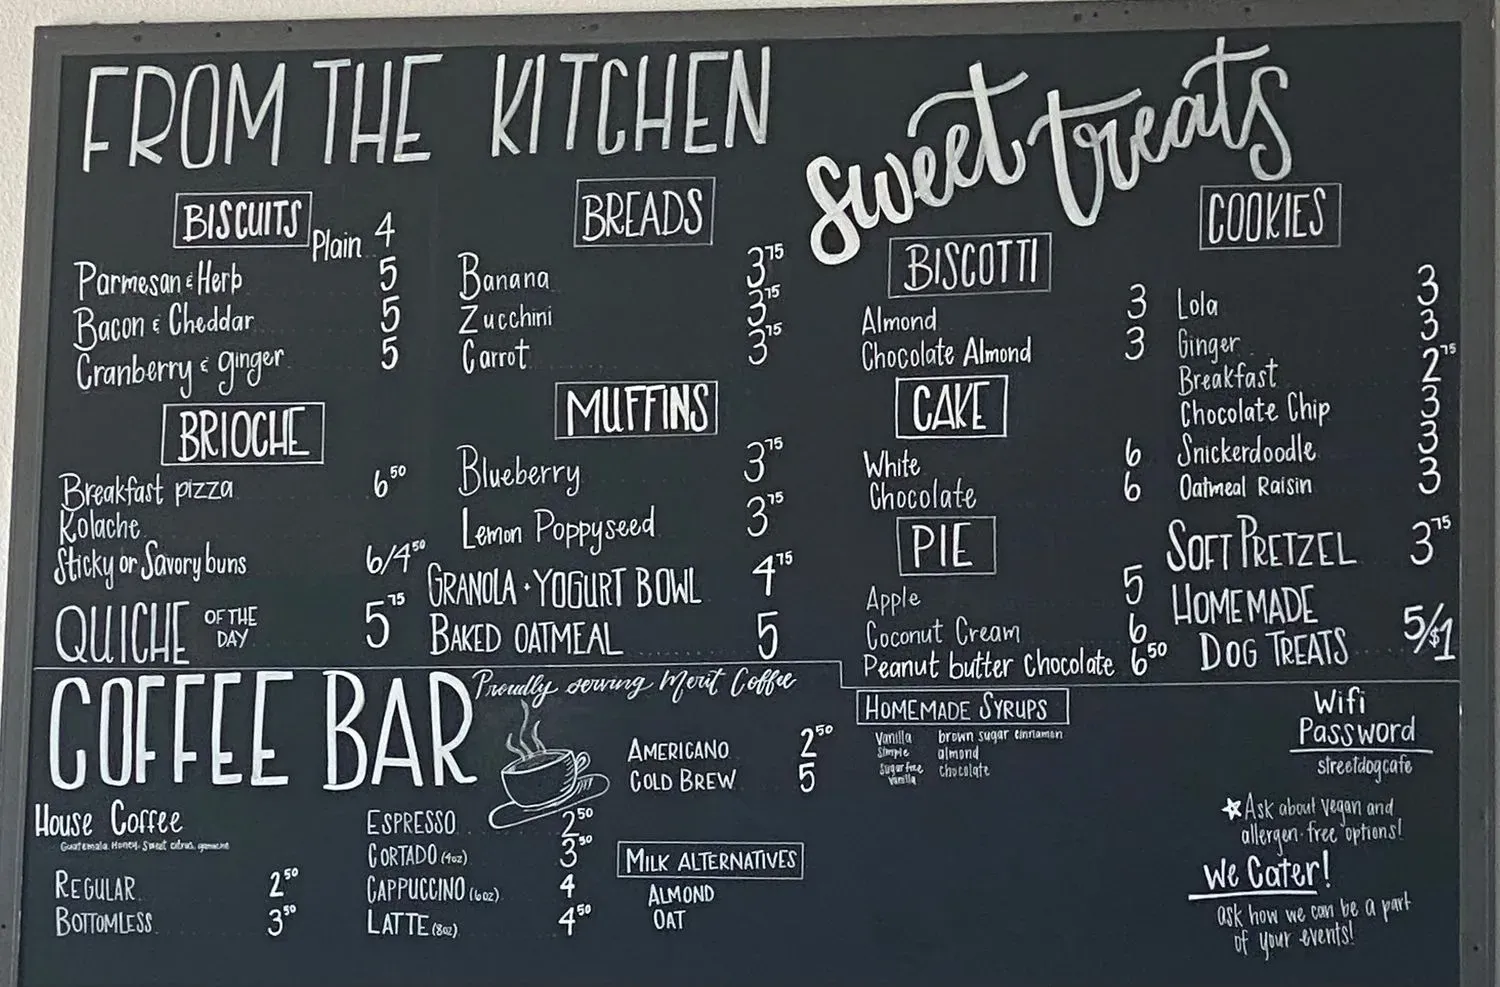 FROM THE KITCHEN
BISCUITS
Plain 4
Parmesan & Herb 5
Bacon & Cheddar 5
Cranberry & ginger 5
BRIOCHE
Breakfast pizza 6 50
Kolache
Sticky or Savory buns 6/4 50
QUICHE OF THE DAY 5 75
BREADS
Banana 3 75
Zucchini 3 75
Carrot 3 75
MUFFINS
Blueberry 3 75
Lemon Poppyseed 3 75
GRANOLA + YOGURT BOWL 4 75
BAKED OATMEAL 5
sweet treats
BISCOTTI
Almond 3
Chocolate Almond 3
CAKE
White 6
Chocolate 6
PIE
Apple 5
Coconut Cream 6
Peanut butter Chocolate 6 50
COOKIES
Lola 3
Ginger 3
Breakfast 2 75
Chocolate Chip 3
Snickerdoodle 3
Oatmeal Raisin 3
SOFT PRETZEL 3 75
HOMEMADE
DOG TREATS 5/$1
COFFEE BAR
Proudly serving Merit Coffee
House Coffee
Guatemala. Honey. Sweet citrus,
REGULAR 2 50
BOTTOMLESS 3 50
ESPRESSO 2 50
CORTADO (4oz) 3 50
CAPPUCCINO (6oz) 4
LATTE (8oz) 4 50
AMERICANO 2 50
COLD BREW 5
MILK ALTERNATIVES
ALMOND
OAT
HOMEMADE SYRUPS
Vanilla brown sugar cinnamon
Simple almond
Sugar free chocolate
Vanilla
Wifi
Password
streetdogcafe
★Ask about vegan and
allergen-free options!
We Cater!
ask how we can be a part
of your events!